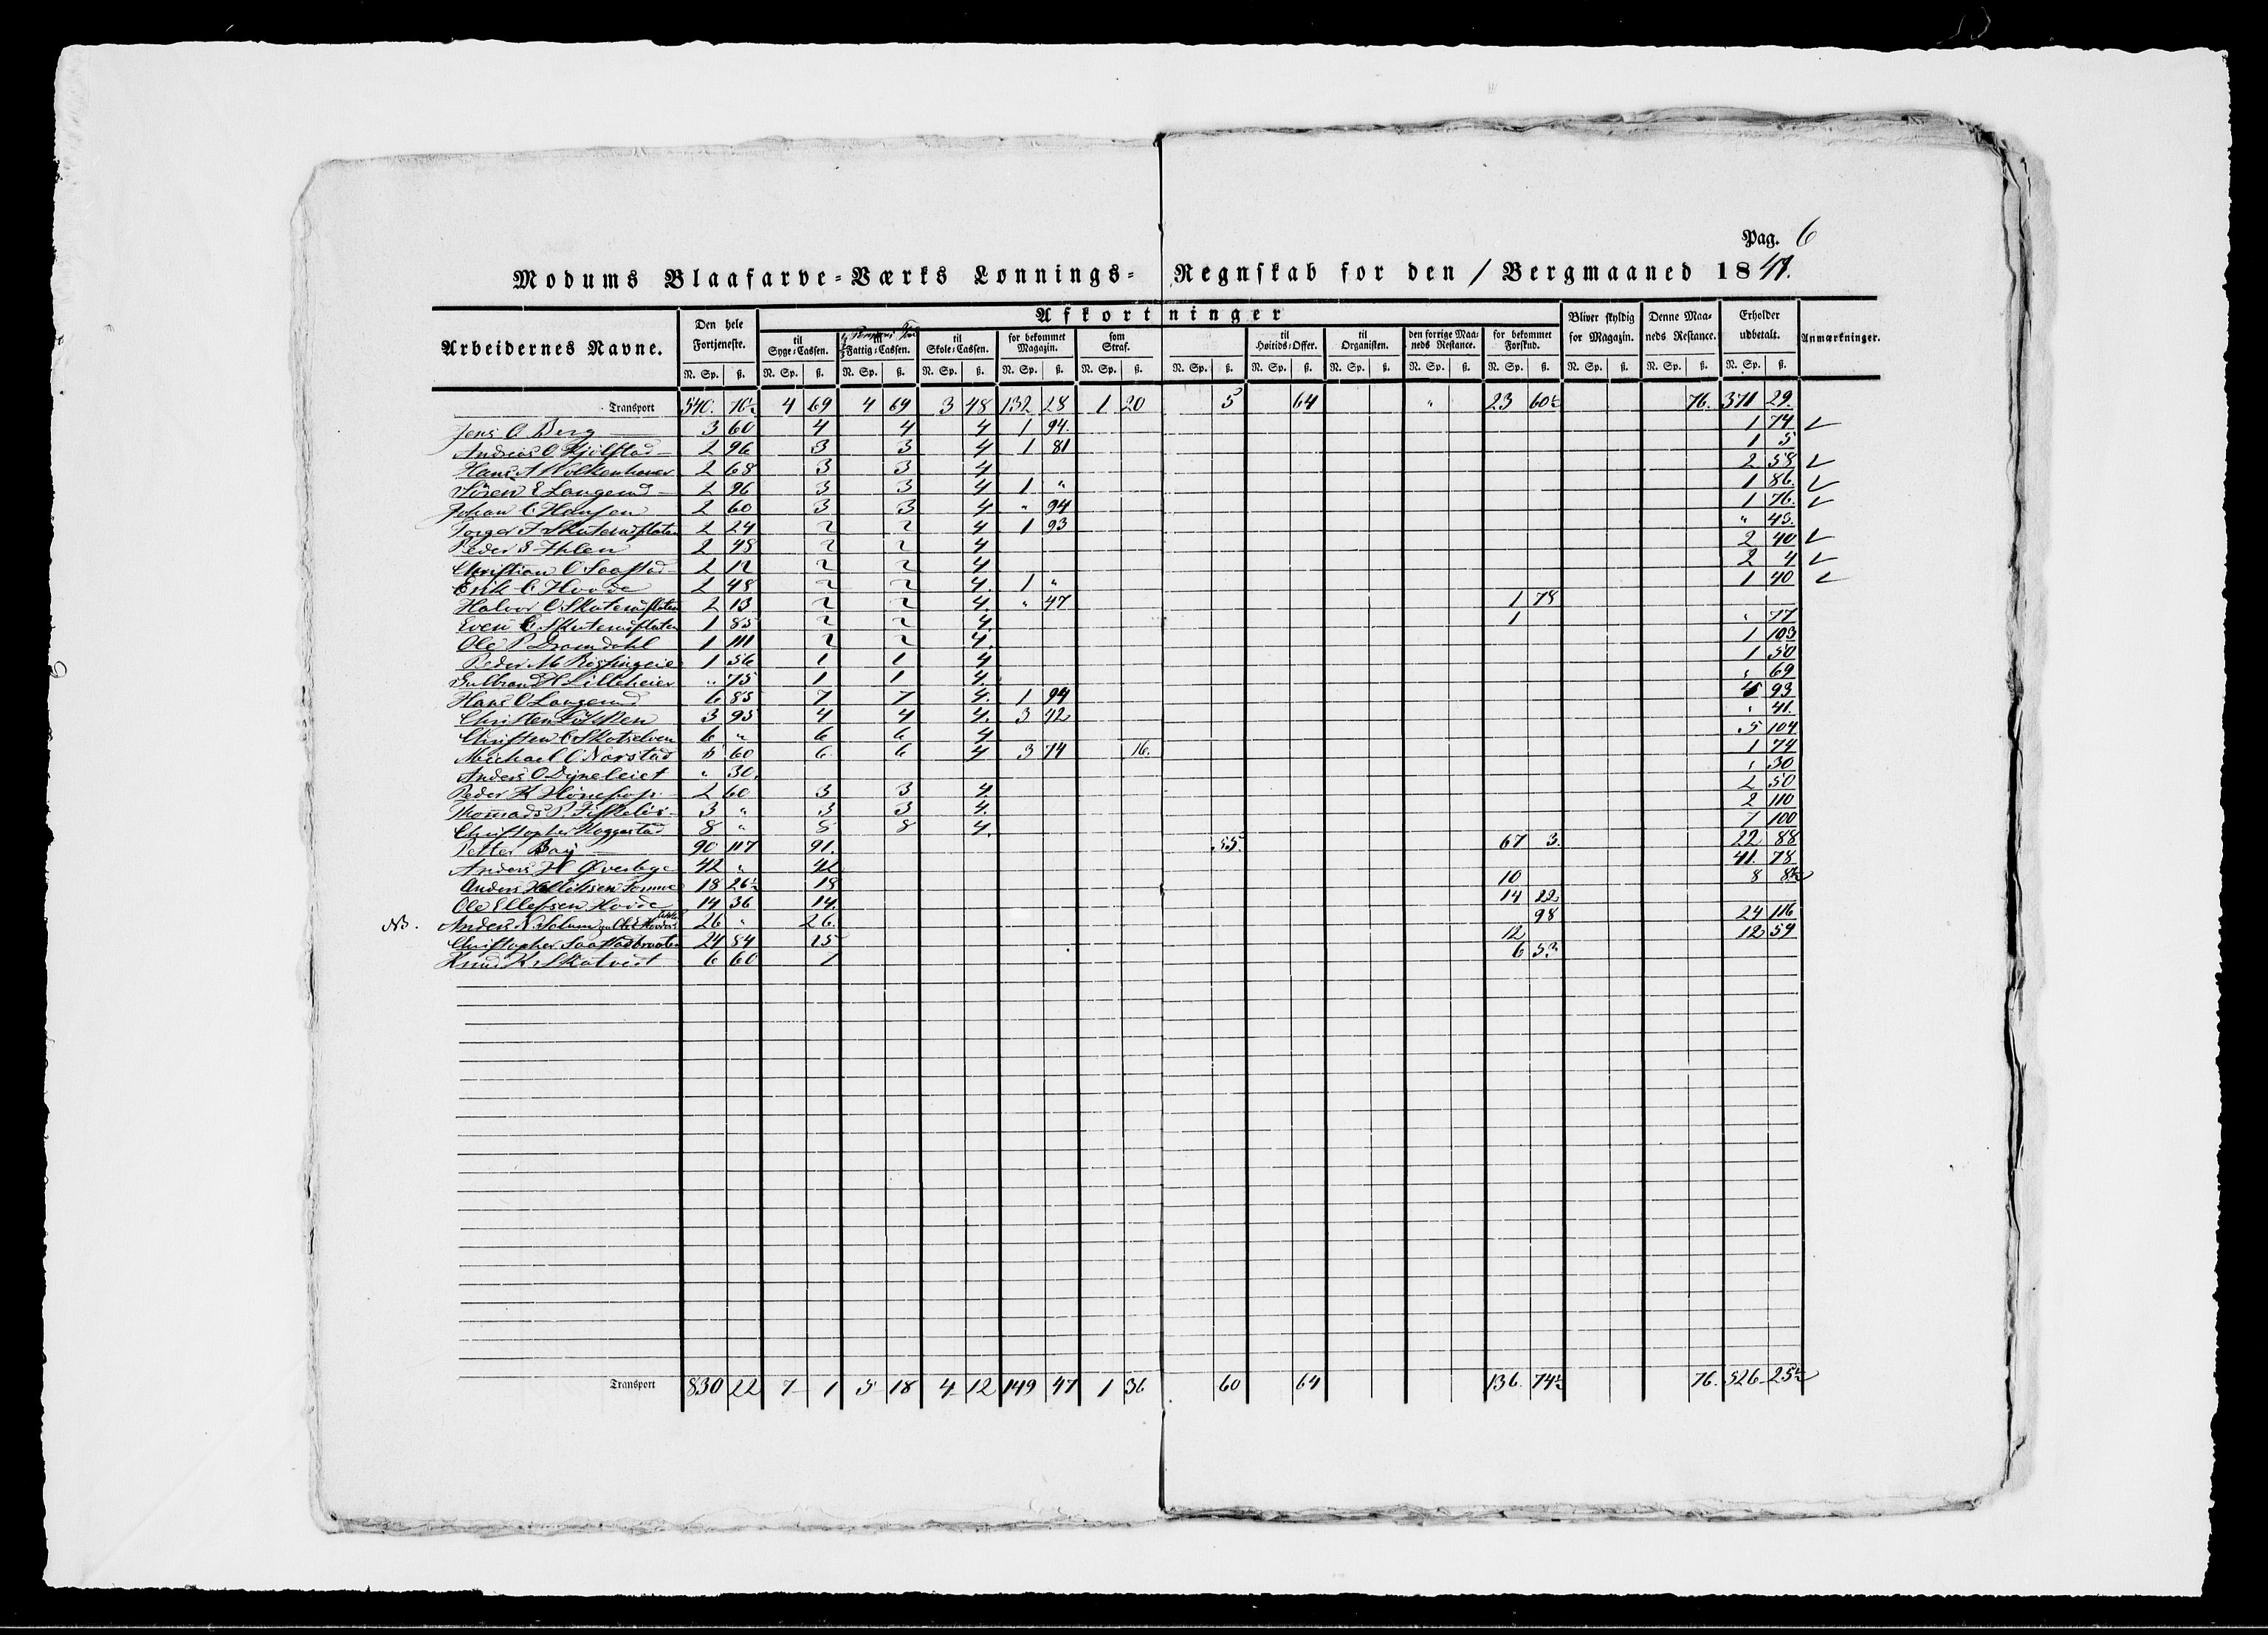 Pag. 6
Modums Blaafarve-Værks Lønnings-Regnskab for den 1 Bergmaaned 1841.
Arbeidernes Navne. Den hele Fortjeneste. Afkortninger Bliver skyldig for Magazin. Denne Maaneds Restance. Erholder udbetalt. Anmærkninger.
til Syge-Cassen. til Fattig-Cassen. til Skole-Cassen. for bekommet Magazin. som Straf. til Høitids-Offer. til Organisten. den forrige Maaneds Restance. for bekommet Forskud.
N. Sp. ß. N. Sp. ß. N. Sp. ß. N. Sp. ß. N. Sp. ß. N. Sp. ß. N. Sp. ß. N. Sp. ß. N. Sp. ß. N. Sp. ß. N. Sp. ß. N. Sp. ß. N. Sp. ß. N. Sp. ß.
Transport 540. 70½ 4 69 4 69 3 48 132 28 1 20 5 64 " 23 60½ 76. 371 29.
Jens O Berg 3 60 4 4 4 1 94. 1 74 ✓
Andreas O Kjølstad 2 96 3 3 4 1 81 1 5
Hans A Wolkenhauer 2 68 3 3 4 2 58 ✓
Søren E Langerud 2 96 3 3 4 1 " 1 86. ✓
Johan C Hansen 2 60 3 3 4 " 94 1 76. ✓
Torger J Skuterudflaten 2 24 2 2 4 1 93 " 43.
Peder S Ihlen 2 48 2 2 4 2 40 ✓
Christian O Saastad 2 12 2 2 4 2 4 ✓
Erik C Hovde 2 48 2 2 4. 1 " 1 40 ✓
Halvor O Skuterudflaten 2 13 2 2 4. " 47 1 78
Even C Skuterudflaten 1 85 2 2 4. 1 " 77
Ole P Dramdahl 1 111 2 2 4. 1 103
Peder M 1 56 1 1 4 1 50
Gulbrand H Lilleheier " 75 1 1 4. " 69
Hans O Langerud 6 85 7 7 4. 1 94 4 93
Christen 3 95 4 4 4. 3 42 " 41.
Christen C Skotselven 6 " 6 6 4 5 104
Michael O Norstad 5 60 6 6 4 3 74 16. 1 74
Anders O Dyneleiet " 30. " 30
Peder K Hønefoss 2 60 3 3 4. 2 50
P. 3 " 3 3 4. 2 110
Christopher Koggestad 8 " 8 8 4. 7 100
Petter Bay 90 117 91. 55. 67 3. 22 88
Anders H Øverbye 42 " 42 41. 78
Anders Ellefsen 18 26½ 18 10 8 8½
Ole Ellefsen Hovde 14 36 14. 14 22
NB. Anders N. Solum 26 " 26. 98 24 116
Christopher Saastadbraaten 24 84 25 12 12 59
Knud K. Skatvedt 6 60 7 6 53.
Transport 830 22 7 1 5 18 4 12 149 47 1 36 60 64 136. 74½ 76. 526 25½